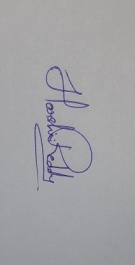 Harshi Reddy